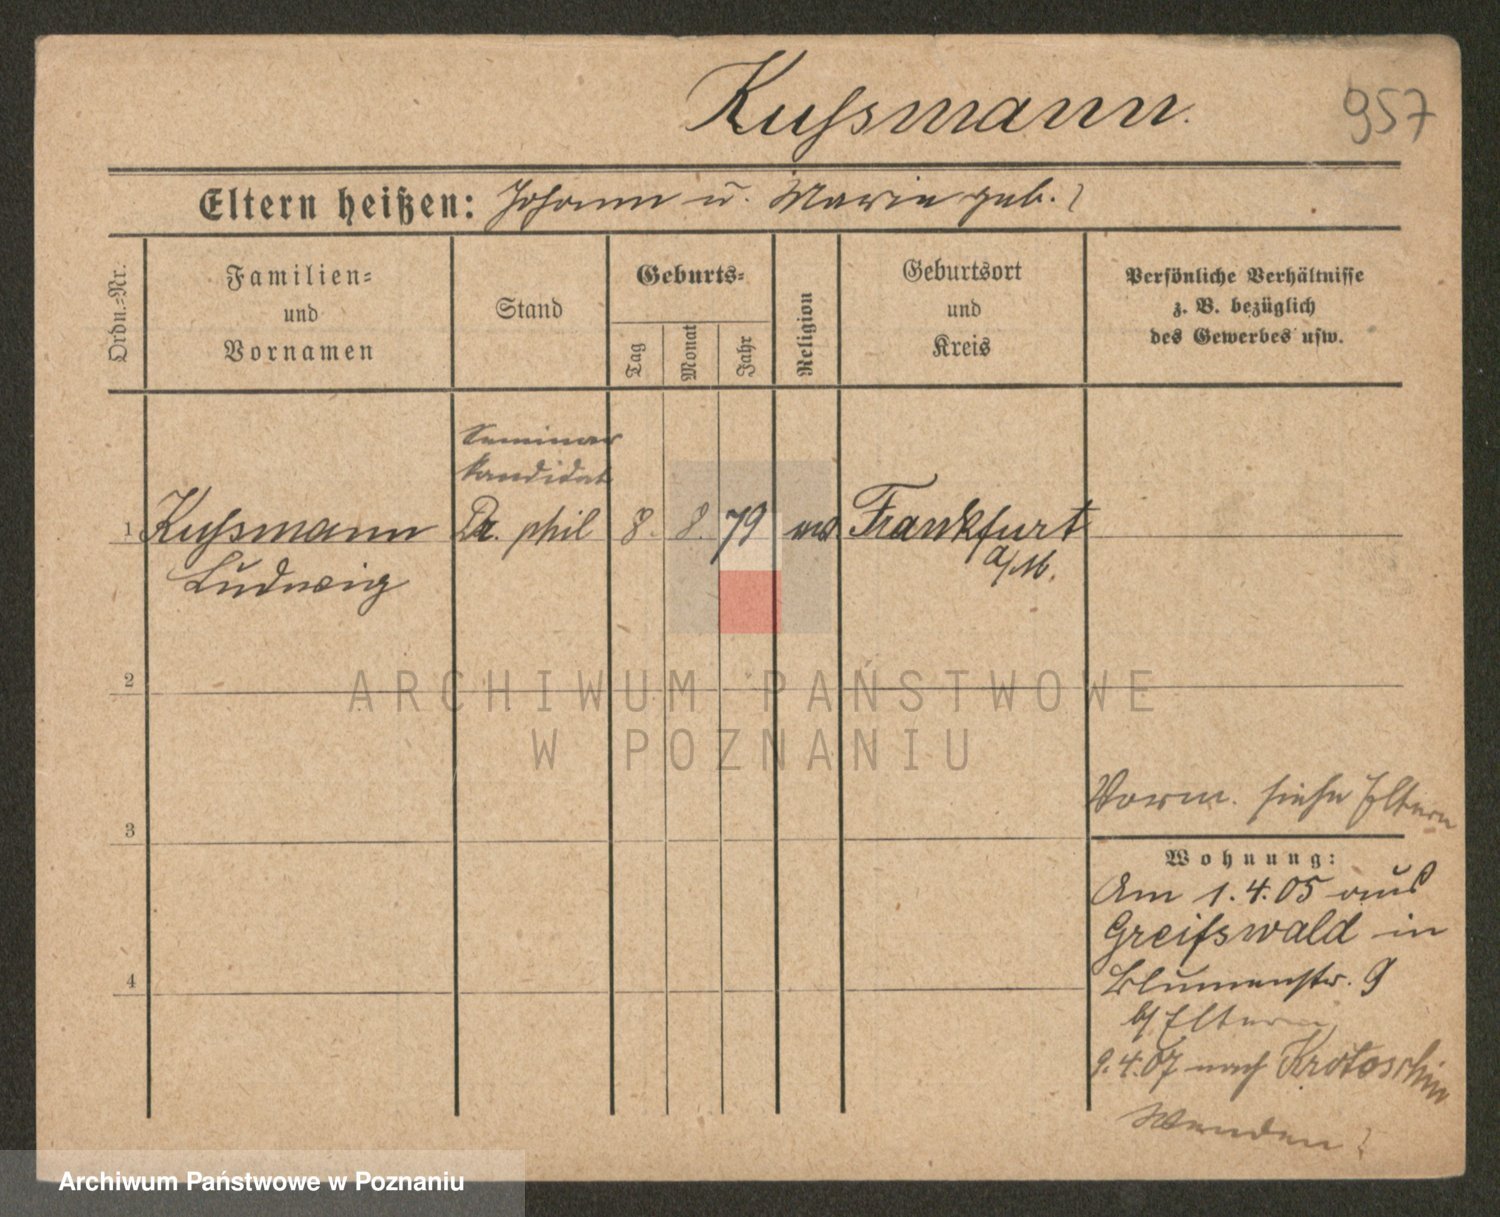 Kussmann.
957
Eltern heißen: Johann u. Marie geb. ?
Ordn.-Nr.
Familien-
und
Vornamen
Stand
Geburts-
Tag
Monat
Jahr
Religion
Geburtsort
und
Kreis
Persönliche Verhältnisse
z. B. bezüglich
des Gewerbes usw.
Seminar
kandidat
1 Kussmann Dr. phil 8. 8. 79 Frankfurt
Ludwig a/M.
2
ARCHIWUM PAŃSTWOWE
W POZNANIU
Vorm. siehe Eltern
3
Wohnung:
Am 1.4.05 aus
Greifswald in
4
Blumenstr. 9
b/ Eltern
9.4.07 nach Krotoschin
Wenden!
Archiwum Państwowe w Poznaniu